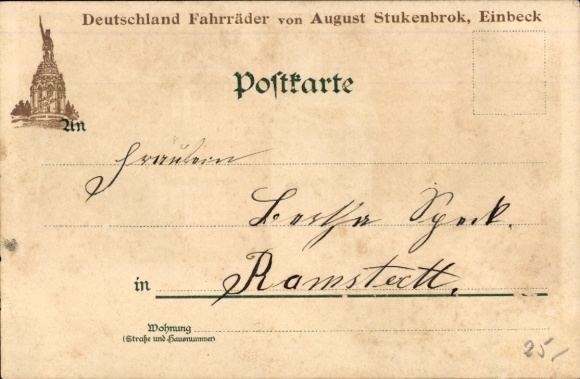 Deutschland Fahrräder von August Stukenbrok, Einbeck
Postkarte
An
Fräulein
Bertha Speck.
in Ramstedt.
Wohnung
(Straße und Hausnummer)
25,-